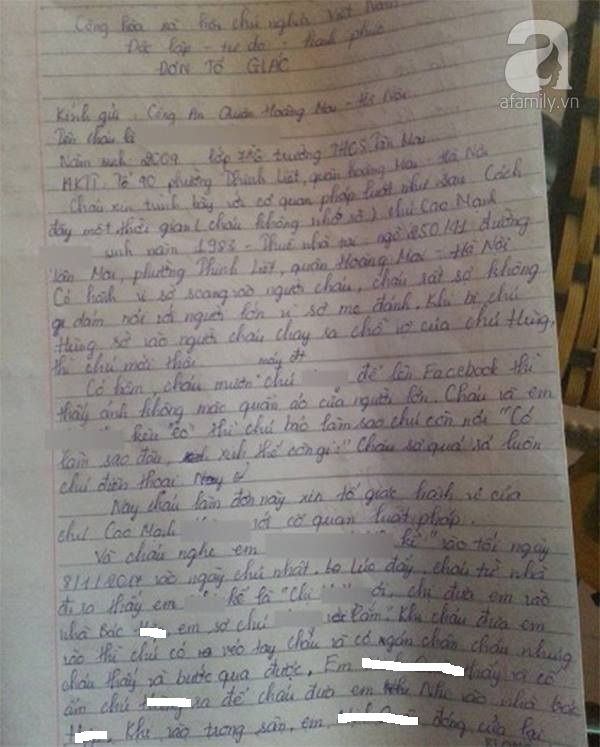 Cộng hòa xã hội chủ nghĩa Việt Nam
Độc lập - tự do - hạnh phúc
ĐƠN TỐ GIÁC
a
afamily.vn
Kính gửi : Công An Quận Hoàng Mai - Hà Nội
Tên cháu là
Năm sinh 2009, lớp trường THCS Tân Mai
HKTT: Tổ 90 phường Thịnh Liệt, quận Hoàng Mai - Hà Nội
Cháu xin trình bày với cơ quan pháp luật như sau. Cách
đây một thời gian ( cháu không nhớ rõ ) chú Cao Mạnh
sinh năm 1983 - Thuê nhà tại ngõ 250/ đường
Tân Mai, phường Thịnh Liệt, quận Hoàng Mai - Hà Nội
Có hành vi sờ soạng vào người cháu, cháu rất sợ không
dám nói với người lớn vì sợ mẹ đánh. Khi bị chú
Hưng sờ vào người cháu chạy ra chỗ vợ của chú Hưng,
thì chú mới thôi.
Có hôm, cháu mượn máy đt chú để lên Facebook thì
thấy ảnh không mặc quần áo của người lớn. Cháu và em
kêu "eo" thì chú bảo làm sao chú còn nói "Có
làm sao đâu, xinh thế còn gì" Cháu sợ quá luôn
chú điện thoại
Nay cháu làm đơn này xin tố giác hành vi của
chú Cao Mạnh với cơ quan luật pháp.
Và cháu nghe em kể "vào tối ngày
8/1/2017 vào ngày chủ nhật. Lúc đấy, cháu từ nhà
đi ra thấy em kể là "Chị ơi, chị đưa em vào
nhà bác em sợ chú lắm". Khi cháu đưa em
vào thì chú có véo tay cháu và có ngăn chặn cháu nhưng
cháu thấy và bước qua được. Em thấy và cô
ấm chú ra để cháu đưa em vào nhà bác
Khi vào trong sân, em đóng cửa lại